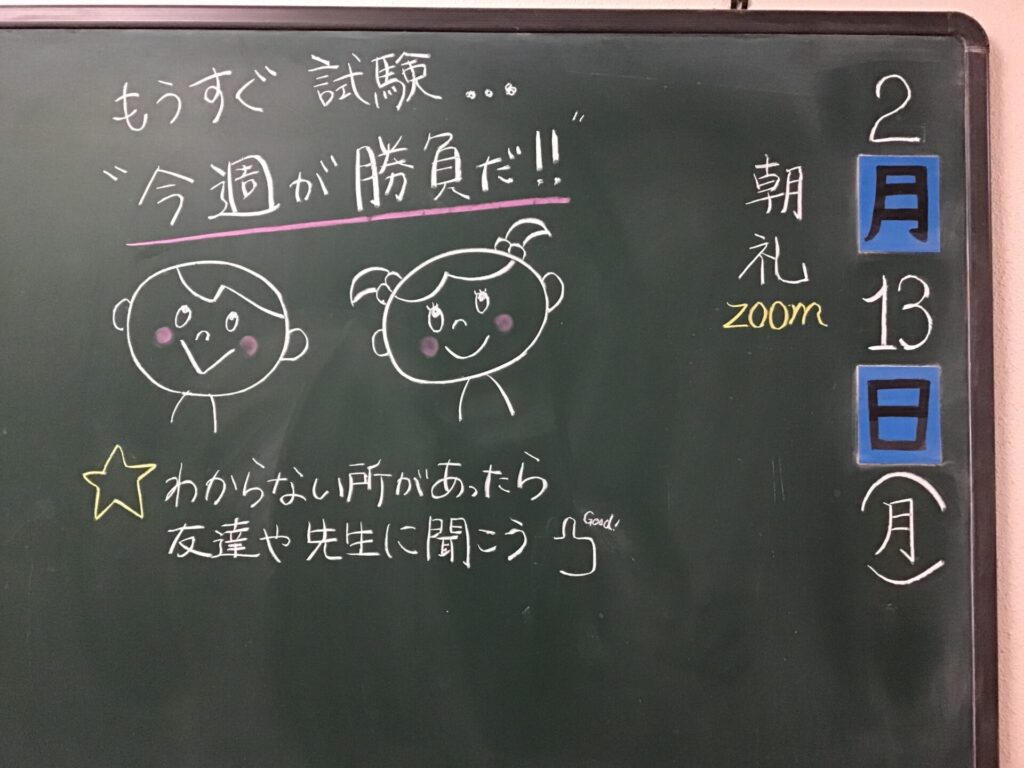 もうすぐ 試験...
"今週が勝負だ!!"
☆わからない所があったら
友達や先生に聞こう
Good!
2月13日(月)
朝礼
zoom